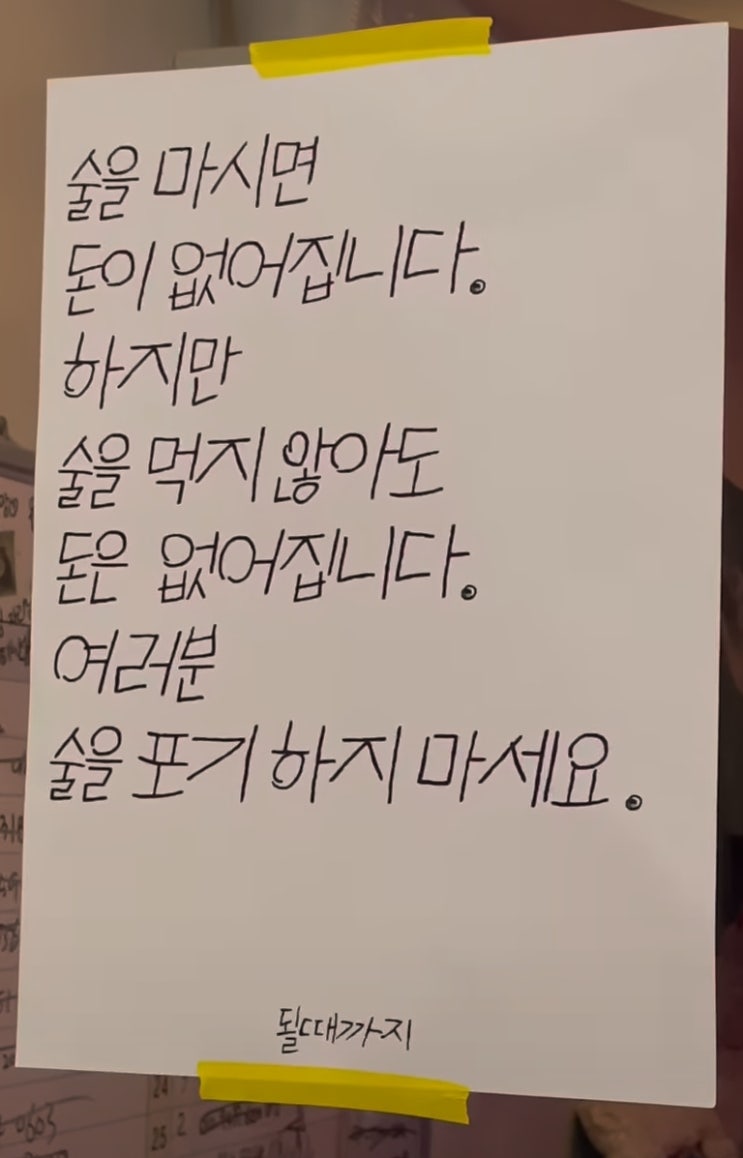 술을 마시면
돈이 없어집니다.
하지만
술을 먹지 않아도
돈은 없어집니다.
여러분
술을 포기 하지 마세요.
될때까지
24
25 2
0603